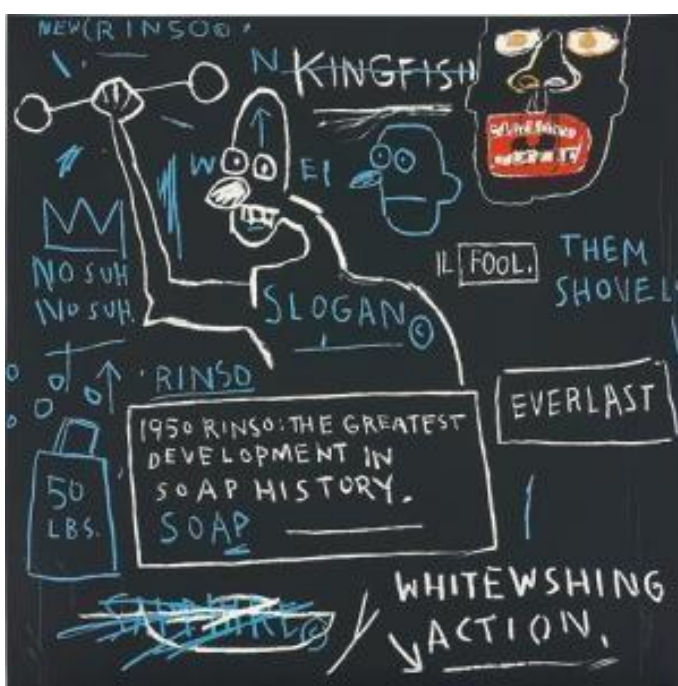 NEW RINSO©
N
KINGFISH
W
EI
NO SUH
NO SUH.
SLOGAN©
IL FOOL.
THEM
SHOVEL
RINSO
EVERLAST
1950 RINSO: THE GREATEST
DEVELOPMENT IN
SOAP HISTORY.
SOAP
50
LBS.
SAPPHIRE©
WHITEWSHING
ACTION.